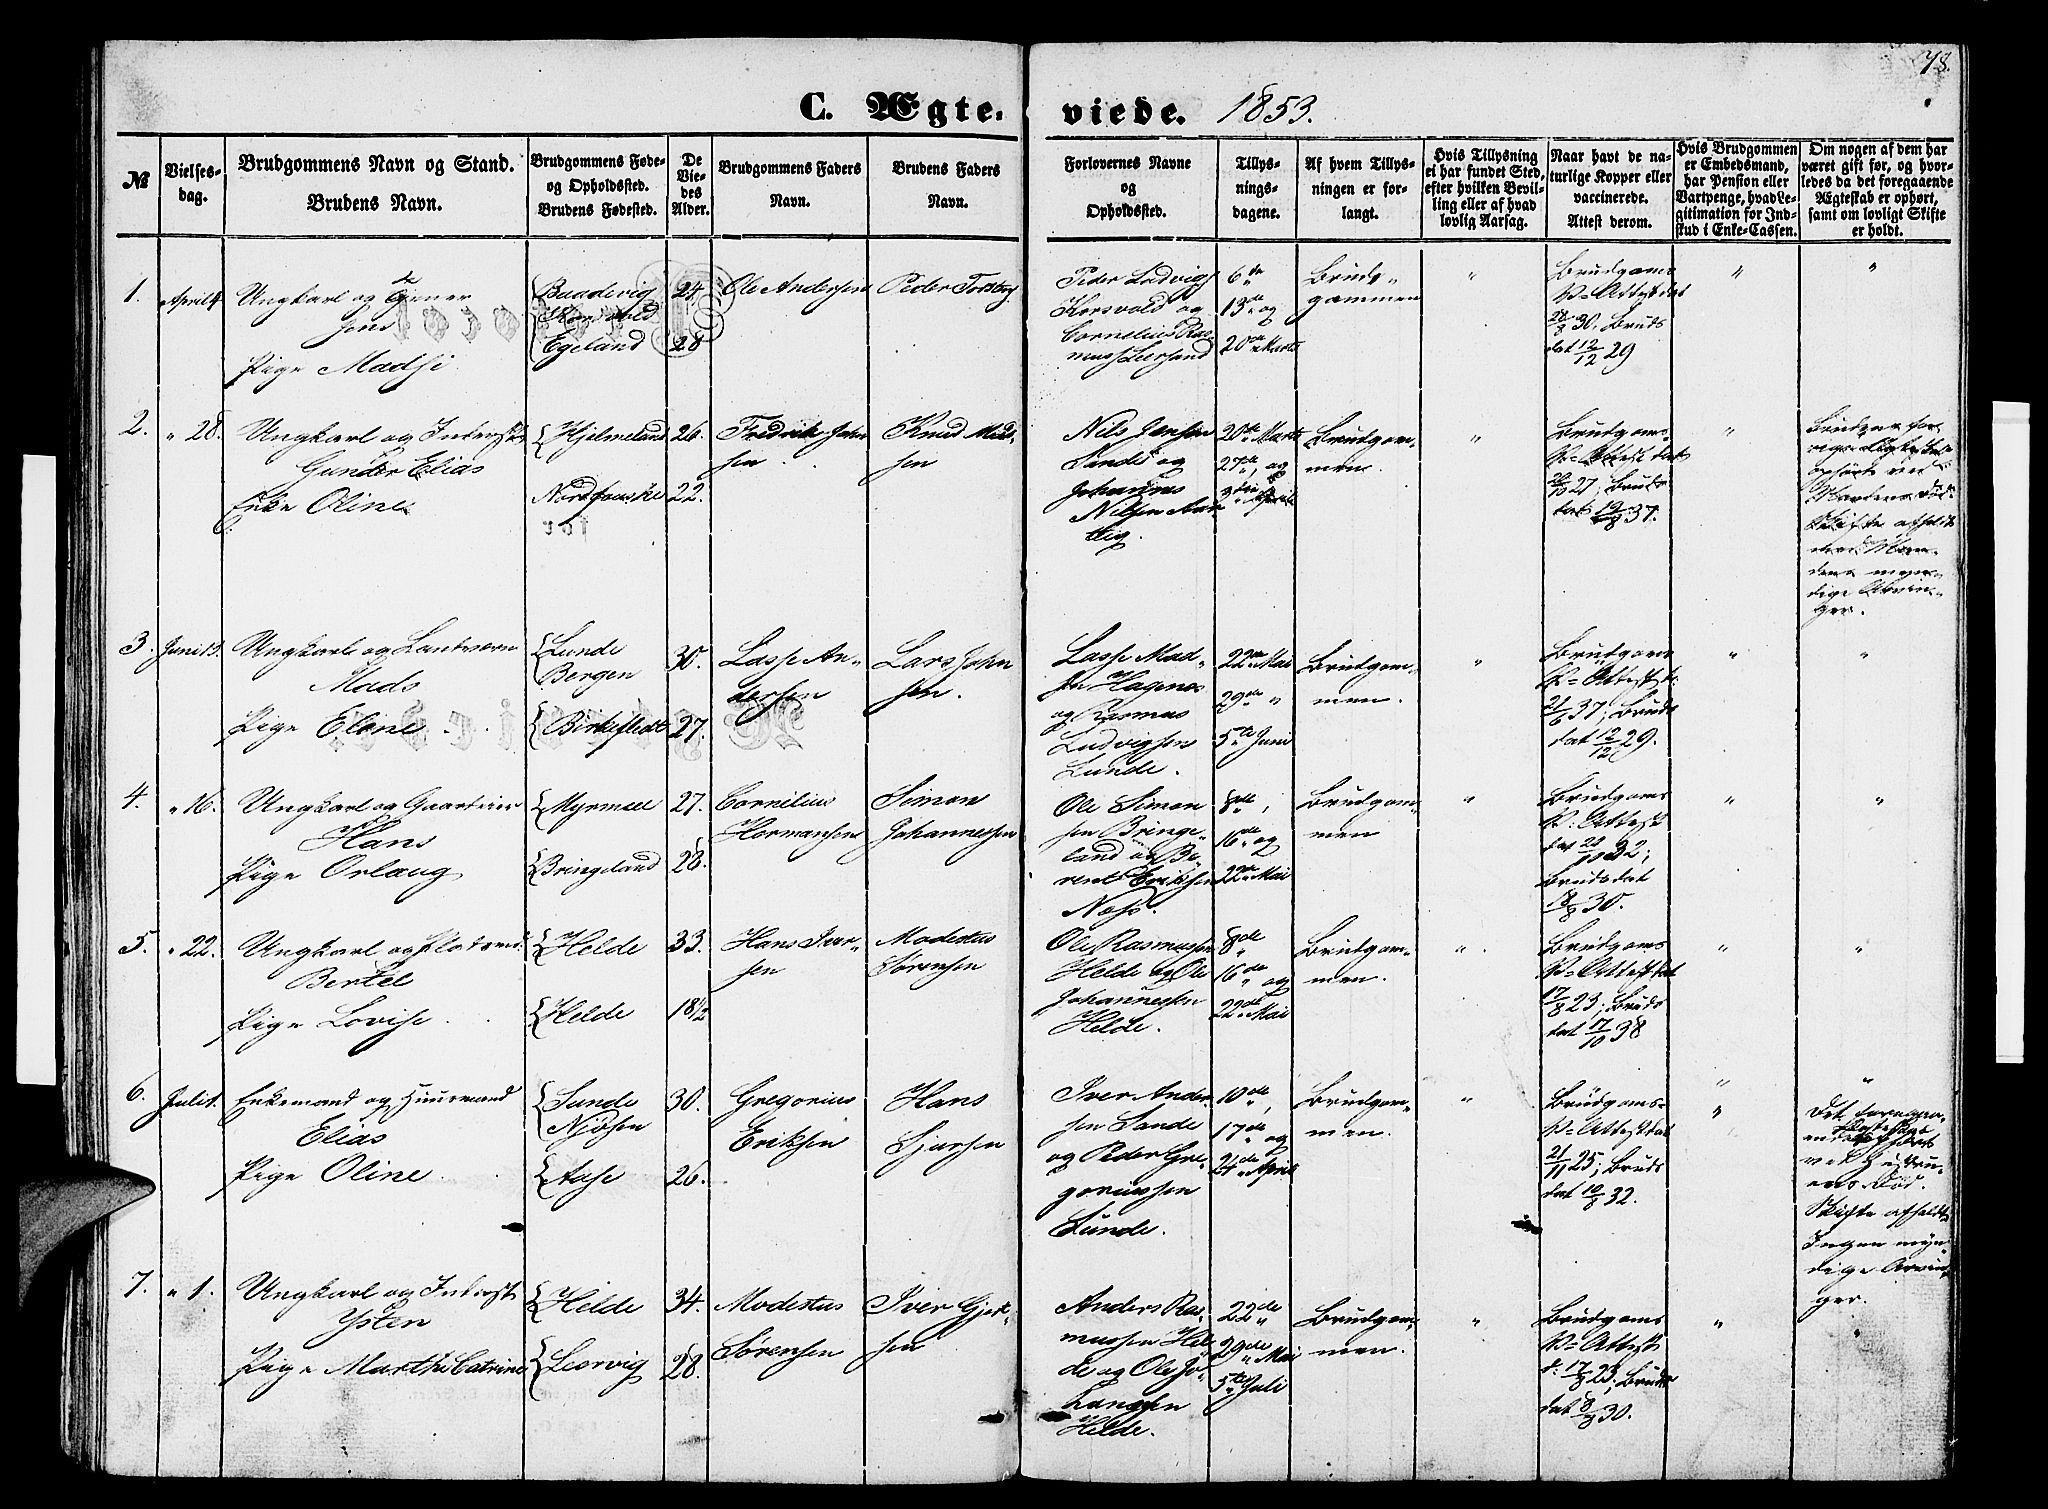 78.
C. Ægte- viede. 1853.
№
Vielses-
dag.
Brudgommens Navn og Stand.
Brudens Navn.
Brudgommens Føde-
og Opholdssted.
Brudens Fødested.
De
Vie-
des
Alder.
Brudgommens Faders
Navn.
Brudens Faders
Navn.
Forlovernes Navne
og
Opholdssted.
Tillys-
nings-
dagene.
Af hvem Tillys-
ningen er for-
langt.
Hvis Tillysning
ei har fundet Sted,
efter hvilken Bevil-
ling eller af hvad
lovlig Aarsag.
Naar havt de na-
turlige Kopper eller
vaccinerede.
Attest derom.
Hvis Brudgommen
er Embedsmand,
har Pension eller
Vartpenge, hvad Le-
gitimation for Ind-
skud i Enke-Cassen.
Om nogen af dem har
været gift før, og hvor-
ledes da det foregaaende
Ægteskab er ophørt,
samt om lovligt Skifte
er holdt.
1. April 4 Ungkarl og
Jens
Pige Madsi
Egeland
24
28
Ole Andersen
Peder
Peder Ludvigs
Korsvold og
Cornelius Ras
muss Leersand
6te
13de og
20de Marts
Brud-
gommen
Brudgoms
V-Attest dat
28/8 30. Bruds
dat 12/12 29
2. " 28. Ungkarl og Inderst
Gunder Elias
Enke Oline
Hjelmeland
26.
22.
Fredrik John
sen
Knud Mad-
sen
Nils Jensen
Sande og
Johannes
Nilsen Aar
vig.
20de Marts
27de, og
3die April
Brudgom-
men.
Brudgoms-
V-Attest dat
27; Bruds
dat 19/8 37.
3. Juni 19. Ungkarl og
Mads
Pige Eline
Lunde
Bergen
Birkeflodt
30.
27.
Lasse An-
dersen
Lars John
sen.
Lasse Mad-
sen Hagenes
og Rasmus
Ludvigsen
Lunde.
22de Mai
29de "
5te Juni
Brudgom-
men.
Brudgoms
V-Attest d.
21/6 37; Bruds
dat 12/12 29.
4. " 16. Ungkarl og Gaardeier
Hans
Pige Orlaug
Myrmæl
Bringeland
27.
28.
Cornelius
Hermansens
Simon
Johannessen
Ole Simon
sen Bringe-
land og Be-
rent Eriksen
Næss.
8de,
16de og
22de Mai
Brudgom-
men
Brudgoms
V. Attest
32;
Bruds dat
18/8 30.
5. " 22. Ungkarl og Pladsmd.
Bertel
Pige Lovise
Helde
Helde
33.
18 1/2
Hans Iver-
sen
Modestus
Sørensen
Ole Rasmussen
Helde og Ole
Johannessen
Helde.
8de
16de og
22de Mai
Brudgom-
men.
Brudgoms
V-Attest dat
17/8 23; Bruds
dat 17/10 38
6. Juli 1. Enkemand og Huusmand
Elias
Pige Oline
Sunde
Njøsen
Aase
30.
26.
Gregorius
Eriksen
Hans
Sjursen
Iver Ander-
sen Sande
og Peder Gre-
goriussen
Sunde.
10de,
17de og
24de April
Brudgom-
men.
Brudgoms-
V-Attest dat
21/11 25; Bruds
dat 10/8 32.
Skifte afholdt
Ingen myn-
dige Arvin-
ger.
7. " 1. Ungkarl og Inderst
Ysten
Pige Marthe Catrine
Helde
Leervig
34.
28.
Modestus
Sørensen
Iver Gjert-
sen
Anders Ras-
mussen Hel-
de og Ole Jo-
hansen
Helde.
22de
29de Mai
5te Juli
Brudgom-
men.
Brudgoms
V-Attest
d. 17/8 23; Bruds
dat 8/8 30.